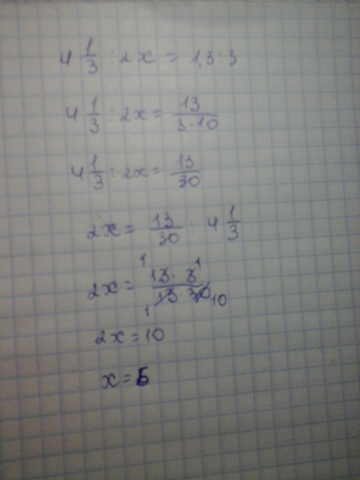 4 1/3 : 2x = 1,3 : 3
4 1/3 : 2x = 13/(3·10)
4 1/3 : 2x = 13/30
2x = 13/30 : 4 1/3
2x = (13 · 3)/(13 · 30) 1 1 1 10
2x = 10
x = 5